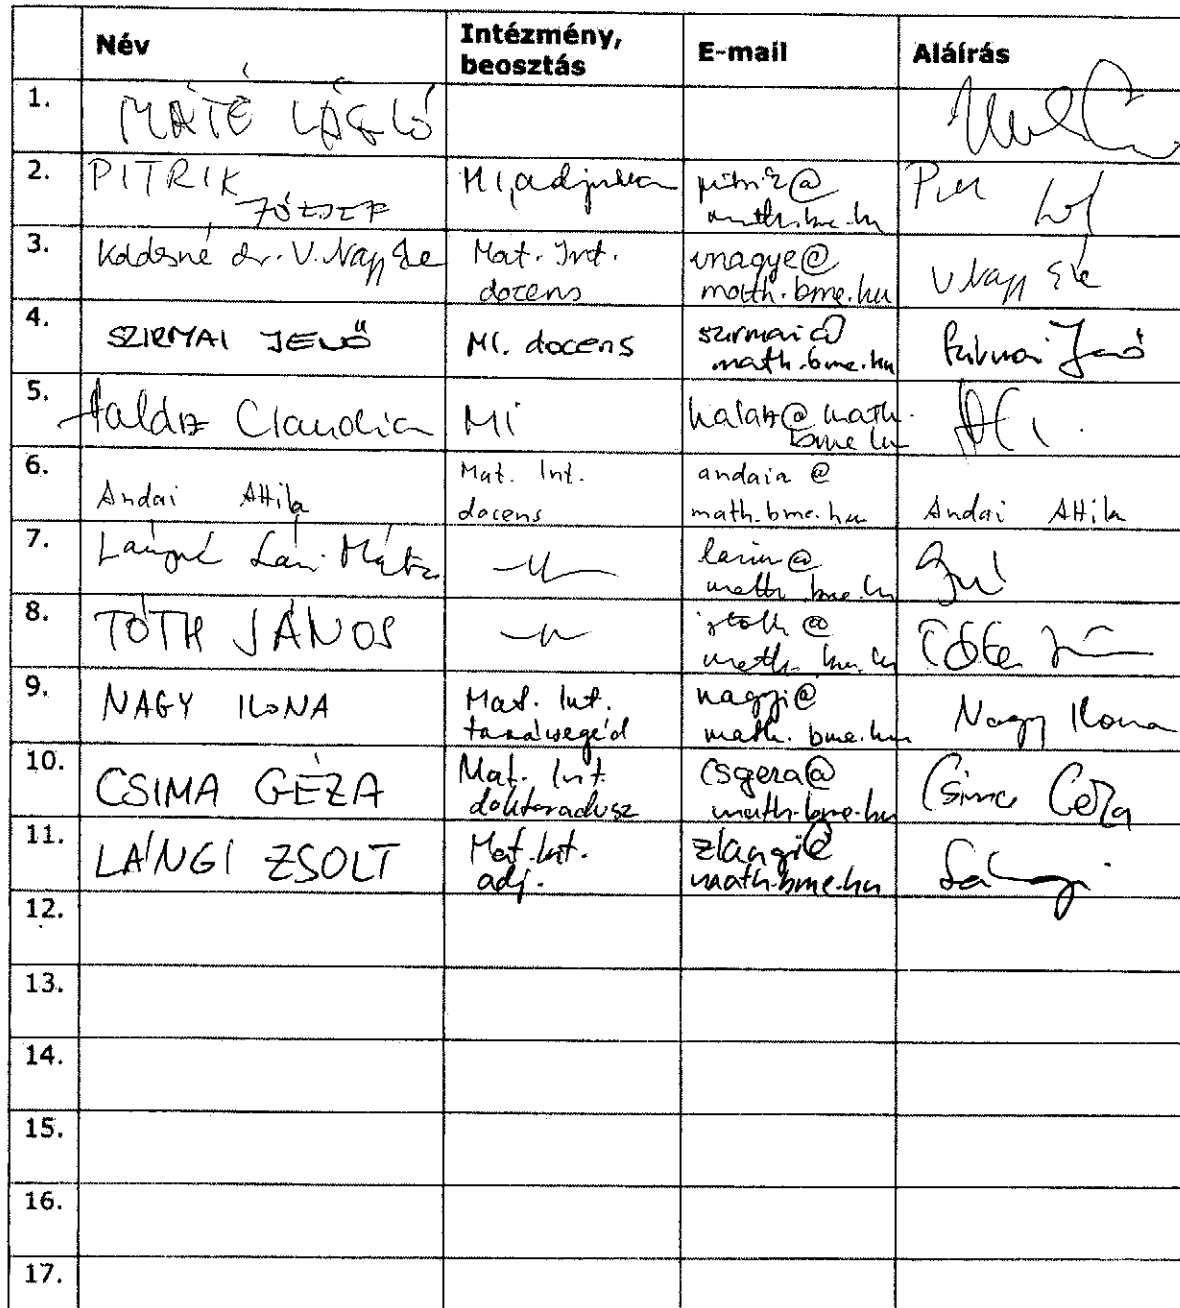 Név Intézmény, beosztás E-mail Aláírás
1. MÁTÉ LÁSZLÓ
2. PITRIK JÓZSEF MI, adjunktus pitrik@ math.bme.hu
3. Kádasné dr. V. Nagy Éva Mat. Int. docens vnagye@ math.bme.hu V Nagy Éva
4. SZIRMAI JENŐ MI. docens szirmai@ math.bme.hu Szirmai Jenő
5. Halász Claudia MI halasz@math. bme.hu
6. Andai Attila Mat. Int. docens andaia@ math.bme.hu Andai Attila
7. Lángné Lázi Márta —〃— lazim@ math.bme.hu
8. TÓTH JÁNOS —〃— jtoth@ math.bme.hu Tóth János
9. NAGY ILONA Mat. Int. tanársegéd nagyi@ math.bme.hu Nagy Ilona
10. CSIMA GÉZA Mat. Int. doktorandusz csgeza@ math.bme.hu Csima Géza
11. LÁNGI ZSOLT Mat. Int. adj. zlangi@ math.bme.hu Lángi
12.
13.
14.
15.
16.
17.